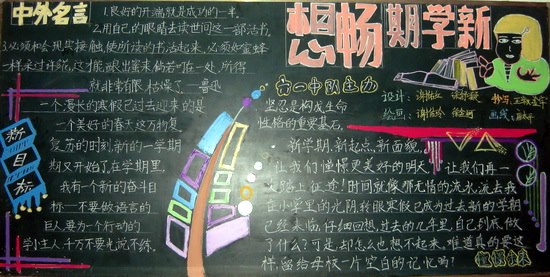 中外名言
1.良好的开端,就是成功的一半。
2.用自己的眼睛去读世间这一部活书。
3.必须和社会现实接触,使所读的书活起来。必须如蜜蜂
一样采过许多花,这才能酿出蜜来,倘若叮在一处,所得
就非常有限,枯燥了—鲁迅
新目标
一个漫长的寒假已过去迎来的是
一个美好的春天这万物复
苏的时刻,新的一学期
期又开始了。在学期里,
我有个新的奋斗目
标—不要做语言的
巨人,要为一个行动的
小主人,千万不要光说不练。
想畅期学新
六一中队
坚忍是构成生命
性格的重要基石。
设计:
绘画:
抄写:
画线:
新学期,新起点,新面貌,
让我们憧憬更美好的明天,让我们再一
次踏上征途!时间就像那无情的流水,流去我
在小学里的光阴,转眼寒假已成为过去新的学期
已经来临,仔细回想,过去的几年里,自己到底做
了什么?可是,却怎么也想不起来。难道真的要这
样,留给母校一片空白的记忆吗?